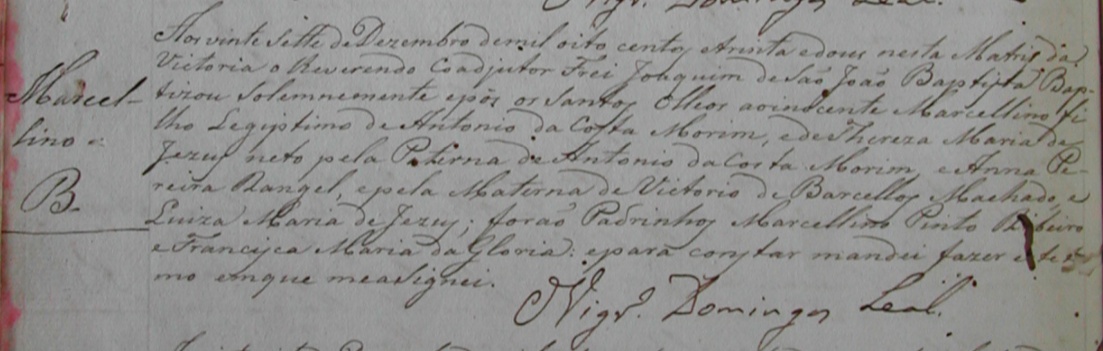 Vigr. Domingos Leal.
Aos vinte sette de Dezembro de mil oito centos etrinta edous nesta Matris da
Victoria o Reverendo Coadjutor Frei Joaquim de São João Baptista Bap-
tizou solemnemente epôs os Santos Olleos aoinocente Marcellino fi
lho Legiptimo de Antonio da Costa Morim, ede Thereza Maria de
Jezus neto pela Paterna de Antonio daCosta Morim, e Anna Pe-
reira Rangel, epela Materna de Victorio de Barcellos Machado, e
Luiza Maria de Jezus; forão Padrinhos Marcellino Pinto Ribeiro
e Francisca Maria da Gloria: epara constar mandei fazer este ter
mo emque meaSignei.
Vigr. Domingos Leal.
Marcel-
lino
B.